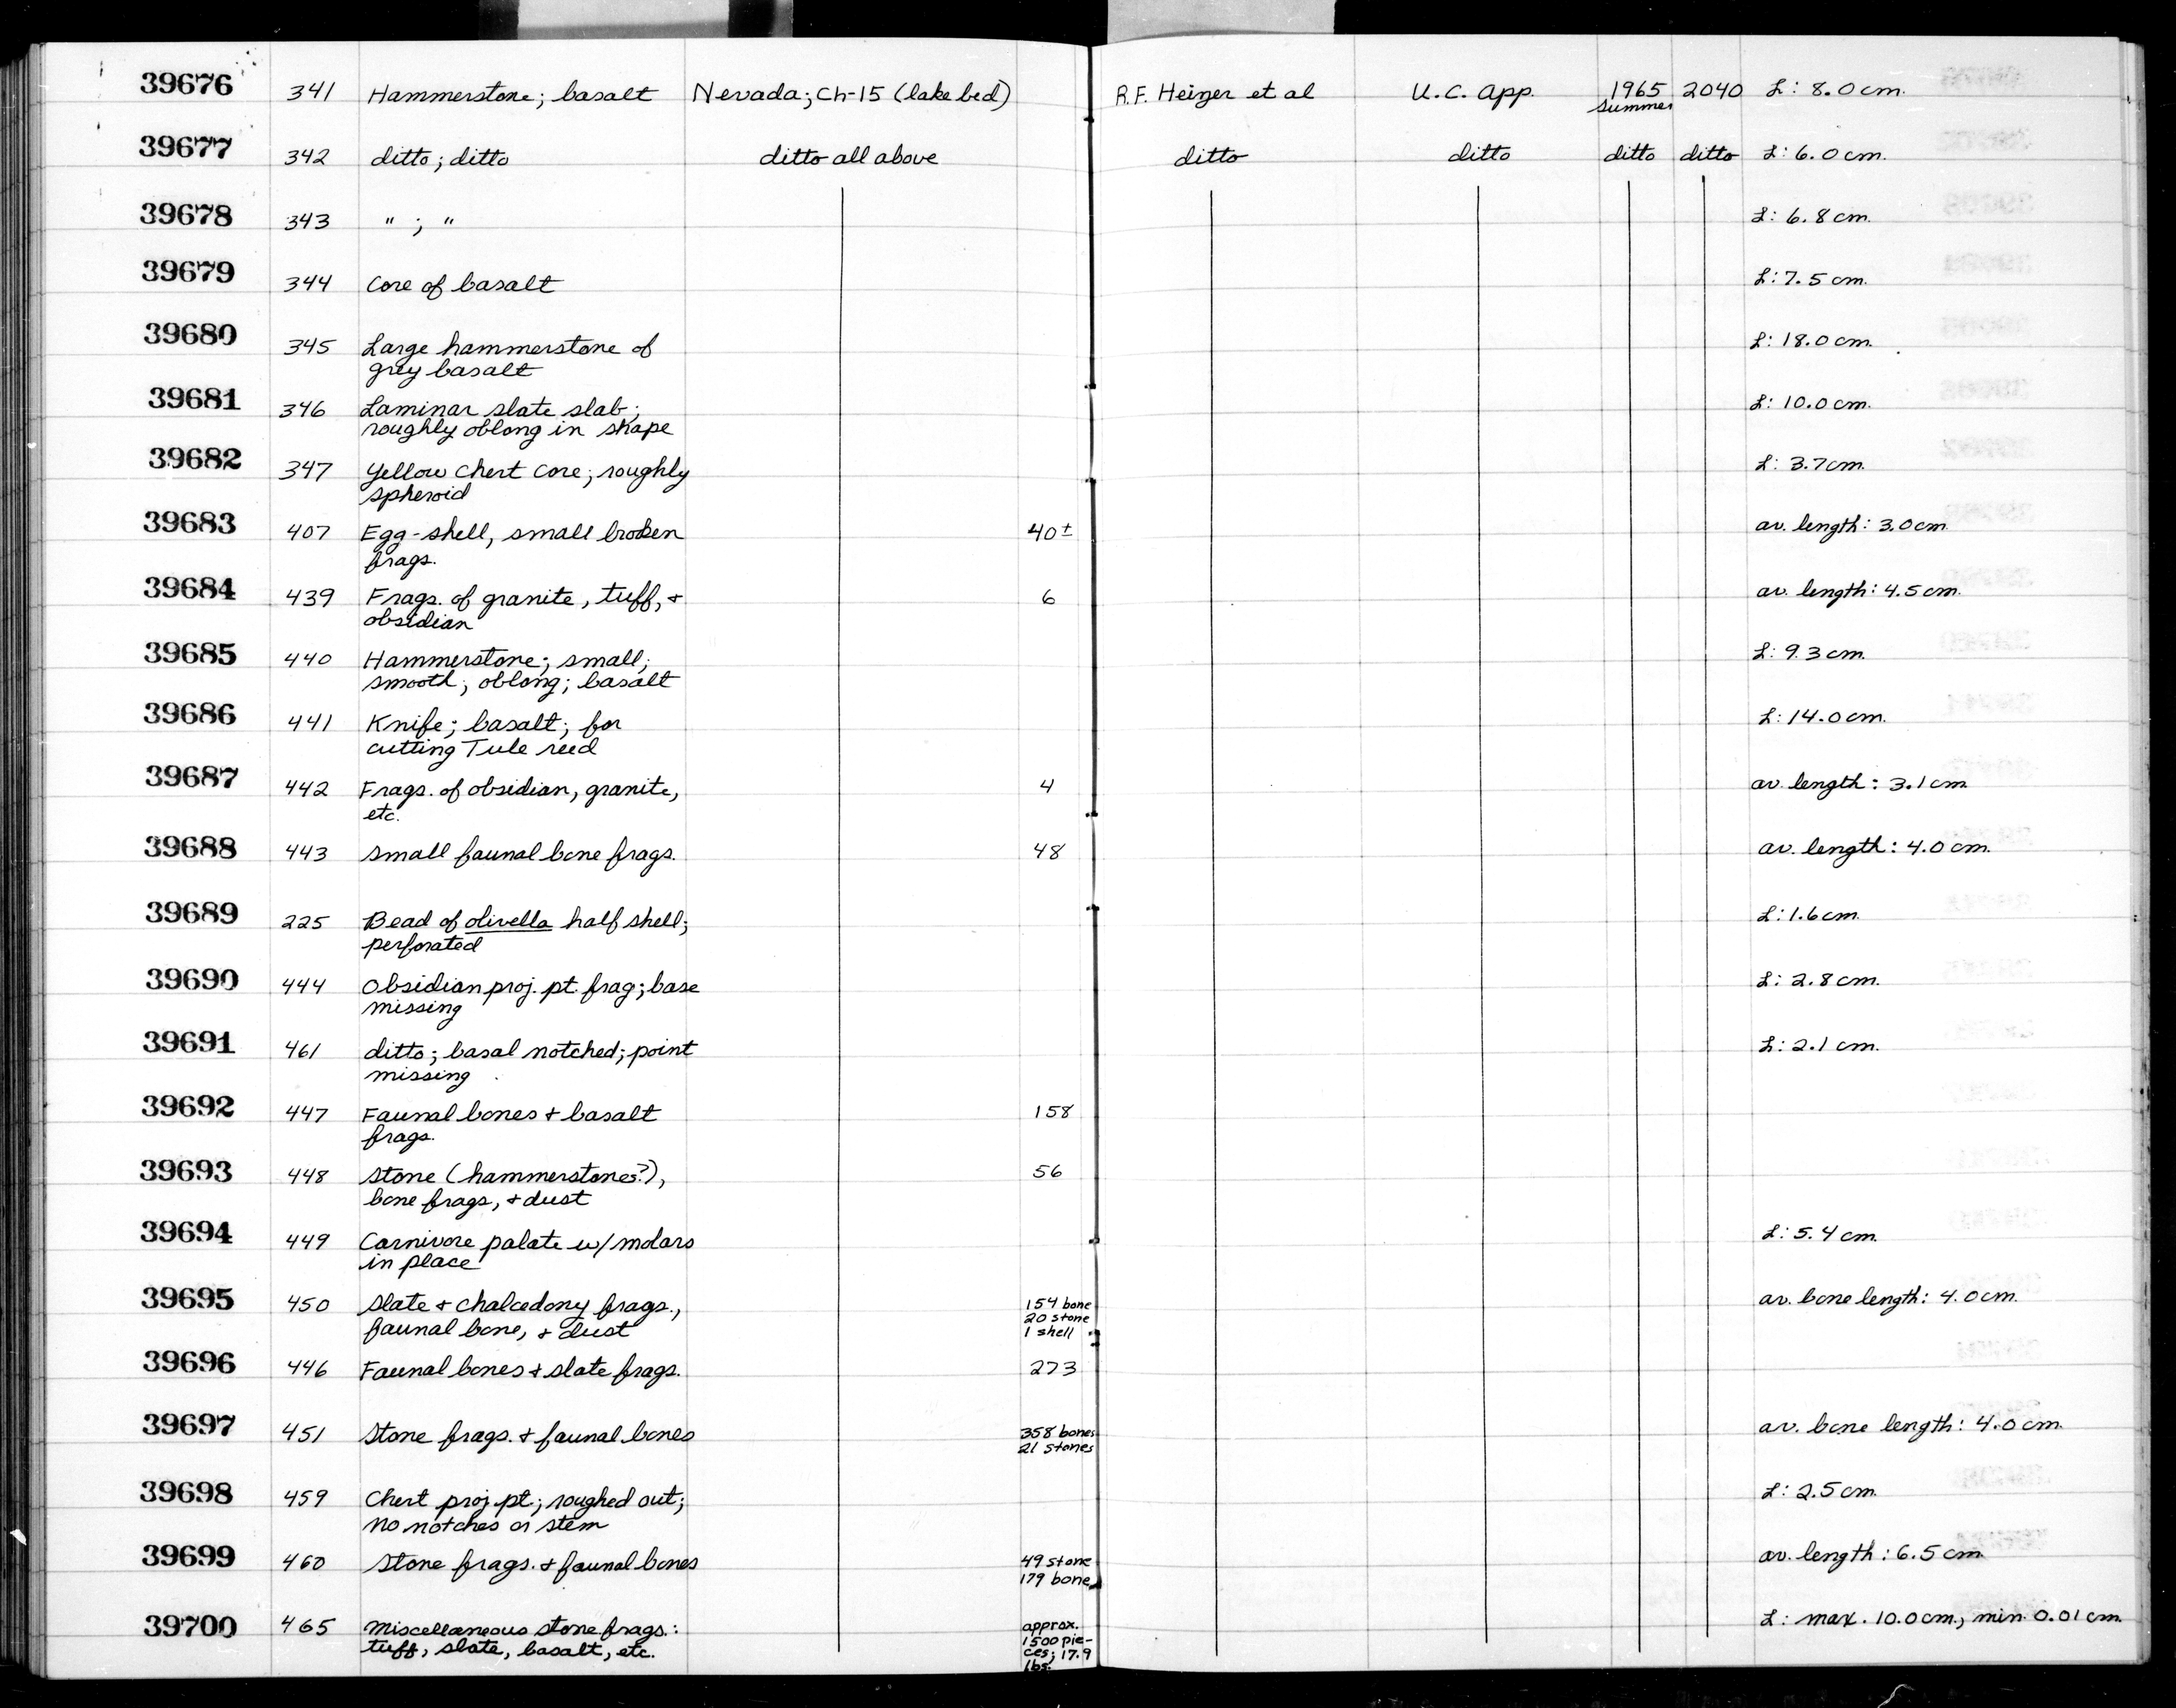 39676 341 Hammerstone; basalt Nevada; Ch-15 (lake bed) R.F. Heizer et al U.C. App. 1965 2040 L: 8.0 cm.
Summer
39677 342 ditto; ditto ditto all above ditto ditto ditto ditto L: 6.0 cm.
39678 343 " ; " L: 6.8 cm.
39679 344 Core of basalt L: 7.5 cm.
39680 345 Large hammerstone of L: 18.0 cm.
grey basalt
39681 346 Laminar slate slab; L: 10.0 cm.
roughly oblong in shape
39682 347 Yellow chert core; roughly L: 3.7 cm.
spheroid
39683 407 Egg-shell, small broken 40± av. length: 3.0 cm.
frags.
39684 439 Frags. of granite, tuff, + 6 av. length: 4.5 cm.
obsidian
39685 440 Hammerstone; small; L: 9.3 cm.
smooth; oblong; basalt
39686 441 Knife; basalt; for L: 14.0 cm.
cutting Tule reed
39687 442 Frags. of obsidian, granite, 4 av. length: 3.1 cm.
etc.
39688 443 Small faunal bone frags. 48 av. length: 4.0 cm.
39689 225 Bead of olivella half shell; L: 1.6 cm.
perforated
39690 444 Obsidian proj. pt. frag; base L: 2.8 cm.
missing
39691 461 ditto; basal notched; point L: 2.1 cm.
missing
39692 447 Faunal bones + basalt 158
frags.
39693 448 Stone (hammerstones?), 56
bone frags, + dust
39694 449 Carnivore palate w/ molars L: 5.4 cm.
in place
39695 450 Slate + chalcedony frags., 154 bone av. bone length: 4.0 cm.
faunal bone, + dust 20 stone
1 shell
39696 446 Faunal bones + slate frags. 273
39697 451 Stone frags. + faunal bones 358 bones av. bone length: 4.0 cm.
21 stones
39698 459 Chert proj. pt.; roughed out; L: 2.5 cm.
no notches or stem
39699 460 Stone frags. + faunal bones 49 stone av. length: 6.5 cm.
179 bone
39700 465 Miscellaneous stone frags.: approx. L: max. 10.0 cm., min. 0.01 cm.
tuff, slate, basalt, etc. 1500 pie-
ces; 17.9
lbs.